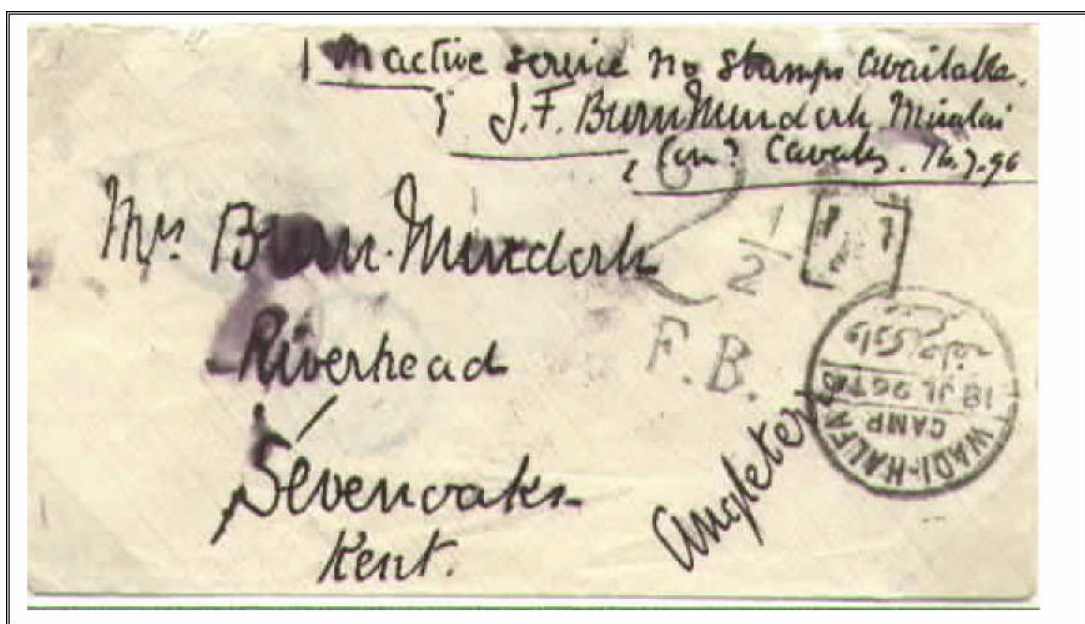 On active service no stamps available.
J.F. Burn Murdoch Miralai
Com? Cavalry. 16.7.96
Mrs. Burn-Murdoch
1/2
T
F.B.
Riverhead
Sevenoaks
Kent.
Angleterre
WADI-HALFA
CAMP
18 JL 96 T